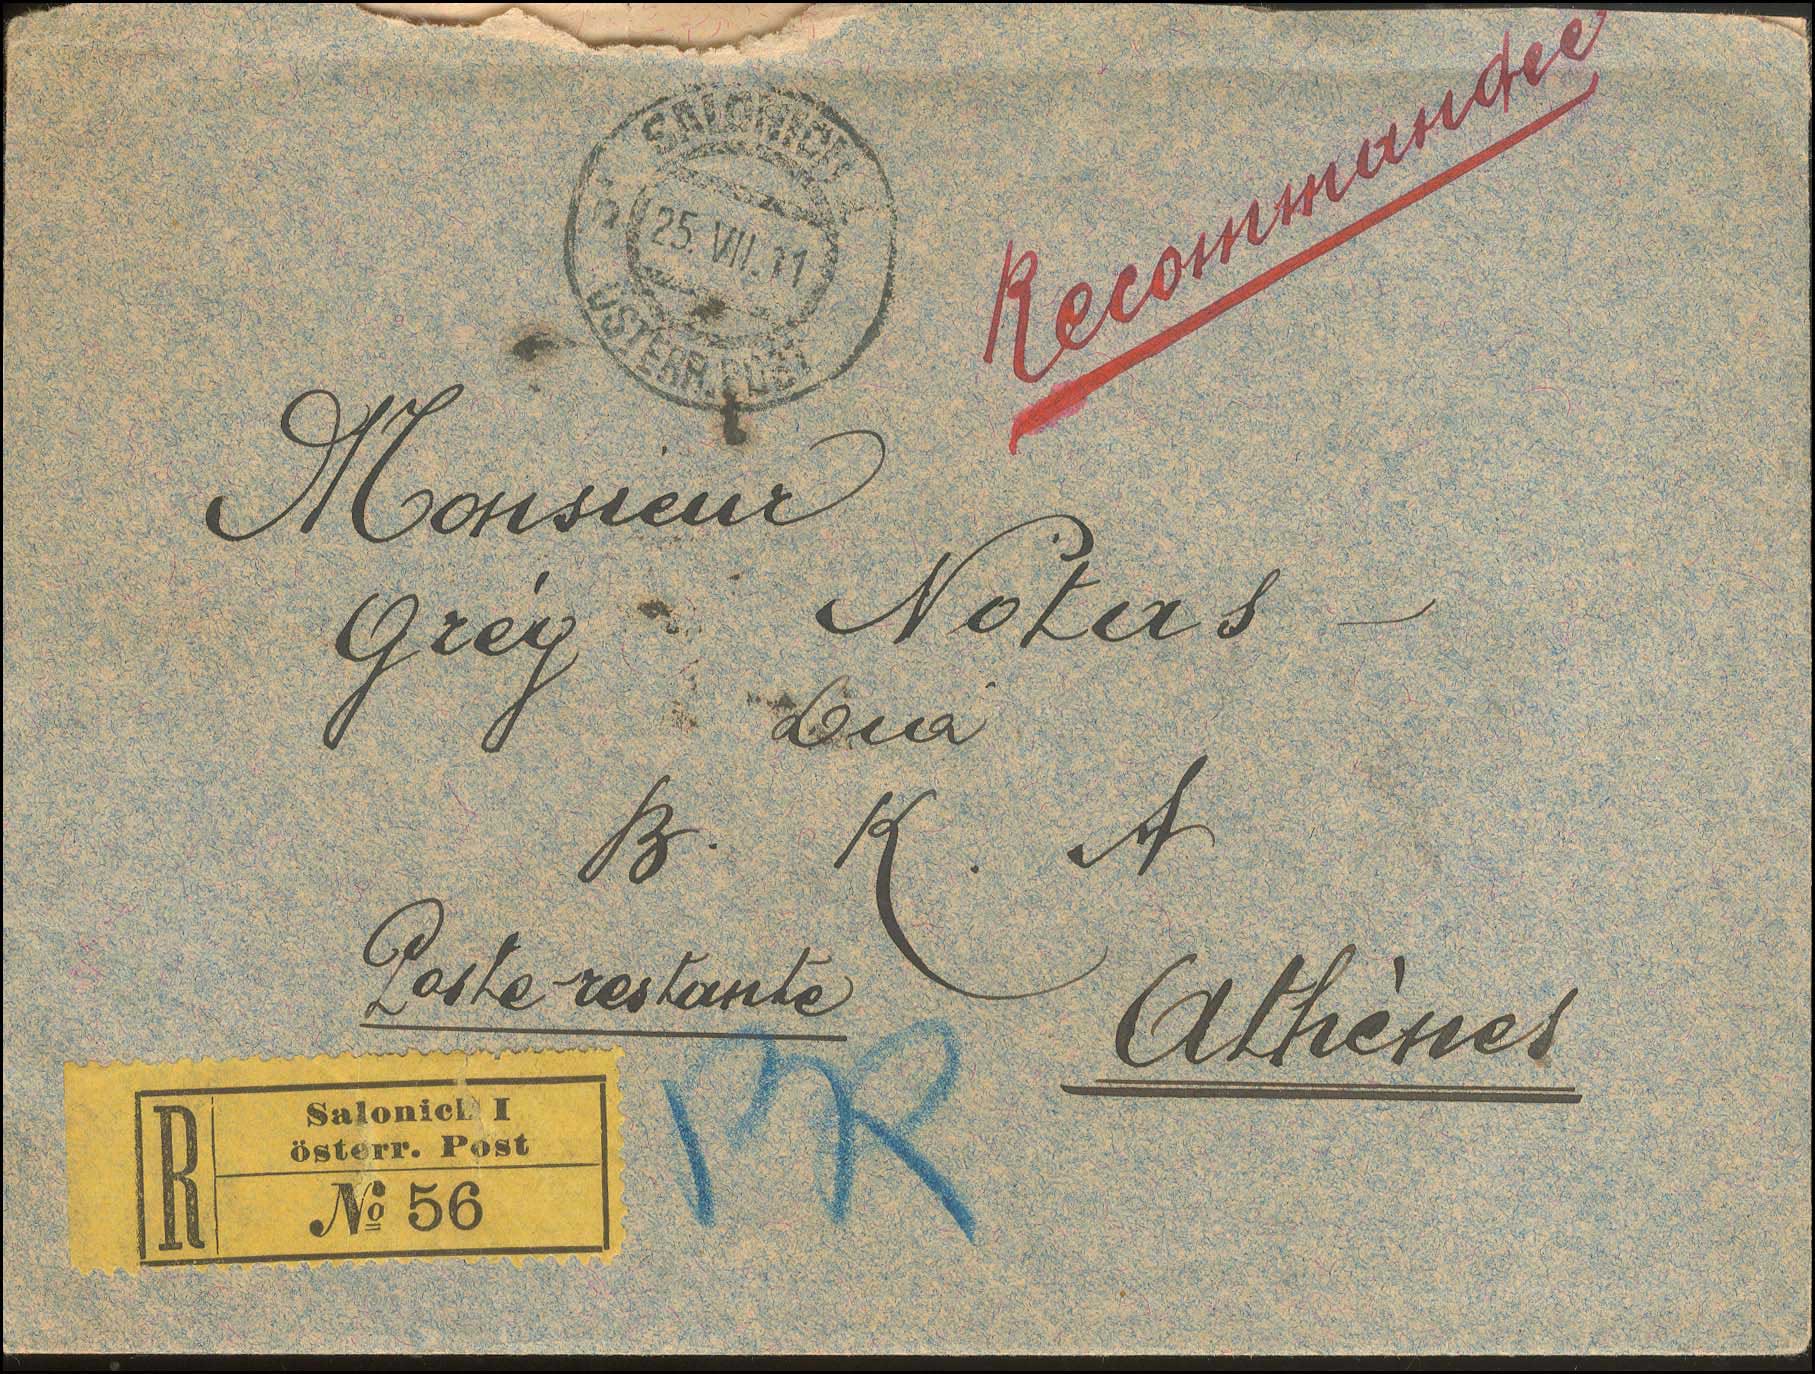 SALONICH
25. VII. 11
ÖSTERR. POST
Recommandée
Monsieur
Grég Notas
B. K. A
Poste-restante
Athènes
PR
R
Salonich I
österr. Post
No 56